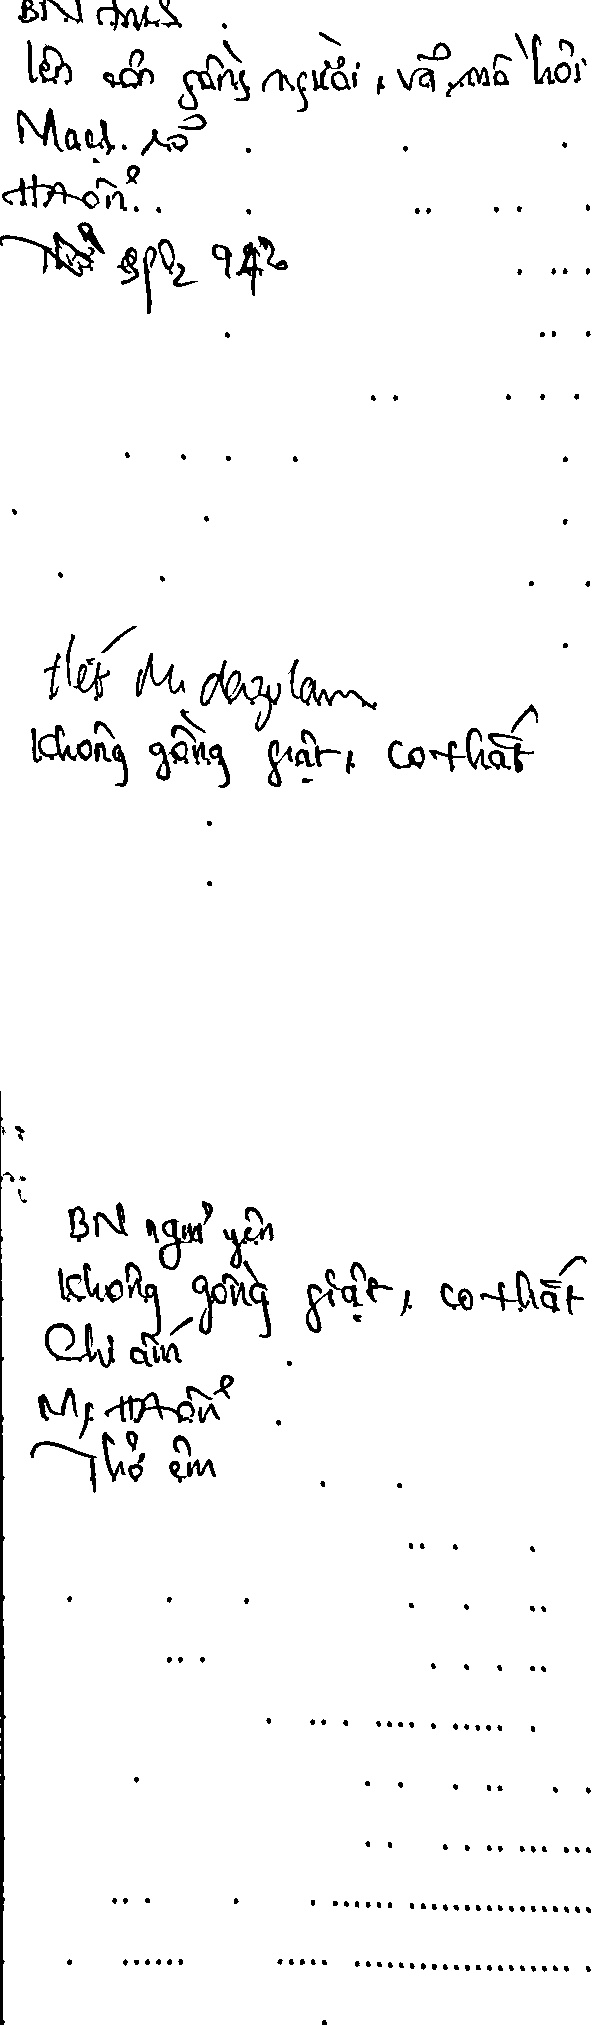 BN
lên cơn gồng người, vã mồ hôi
Mạch rõ
HA ổn
Thở SpO2 94%
Hết Midazolam
Không gồng giật, co thắt
BN ngủ yên
Không gồng giật, co thắt
Chi ấm
M, HA ổn
Thở êm